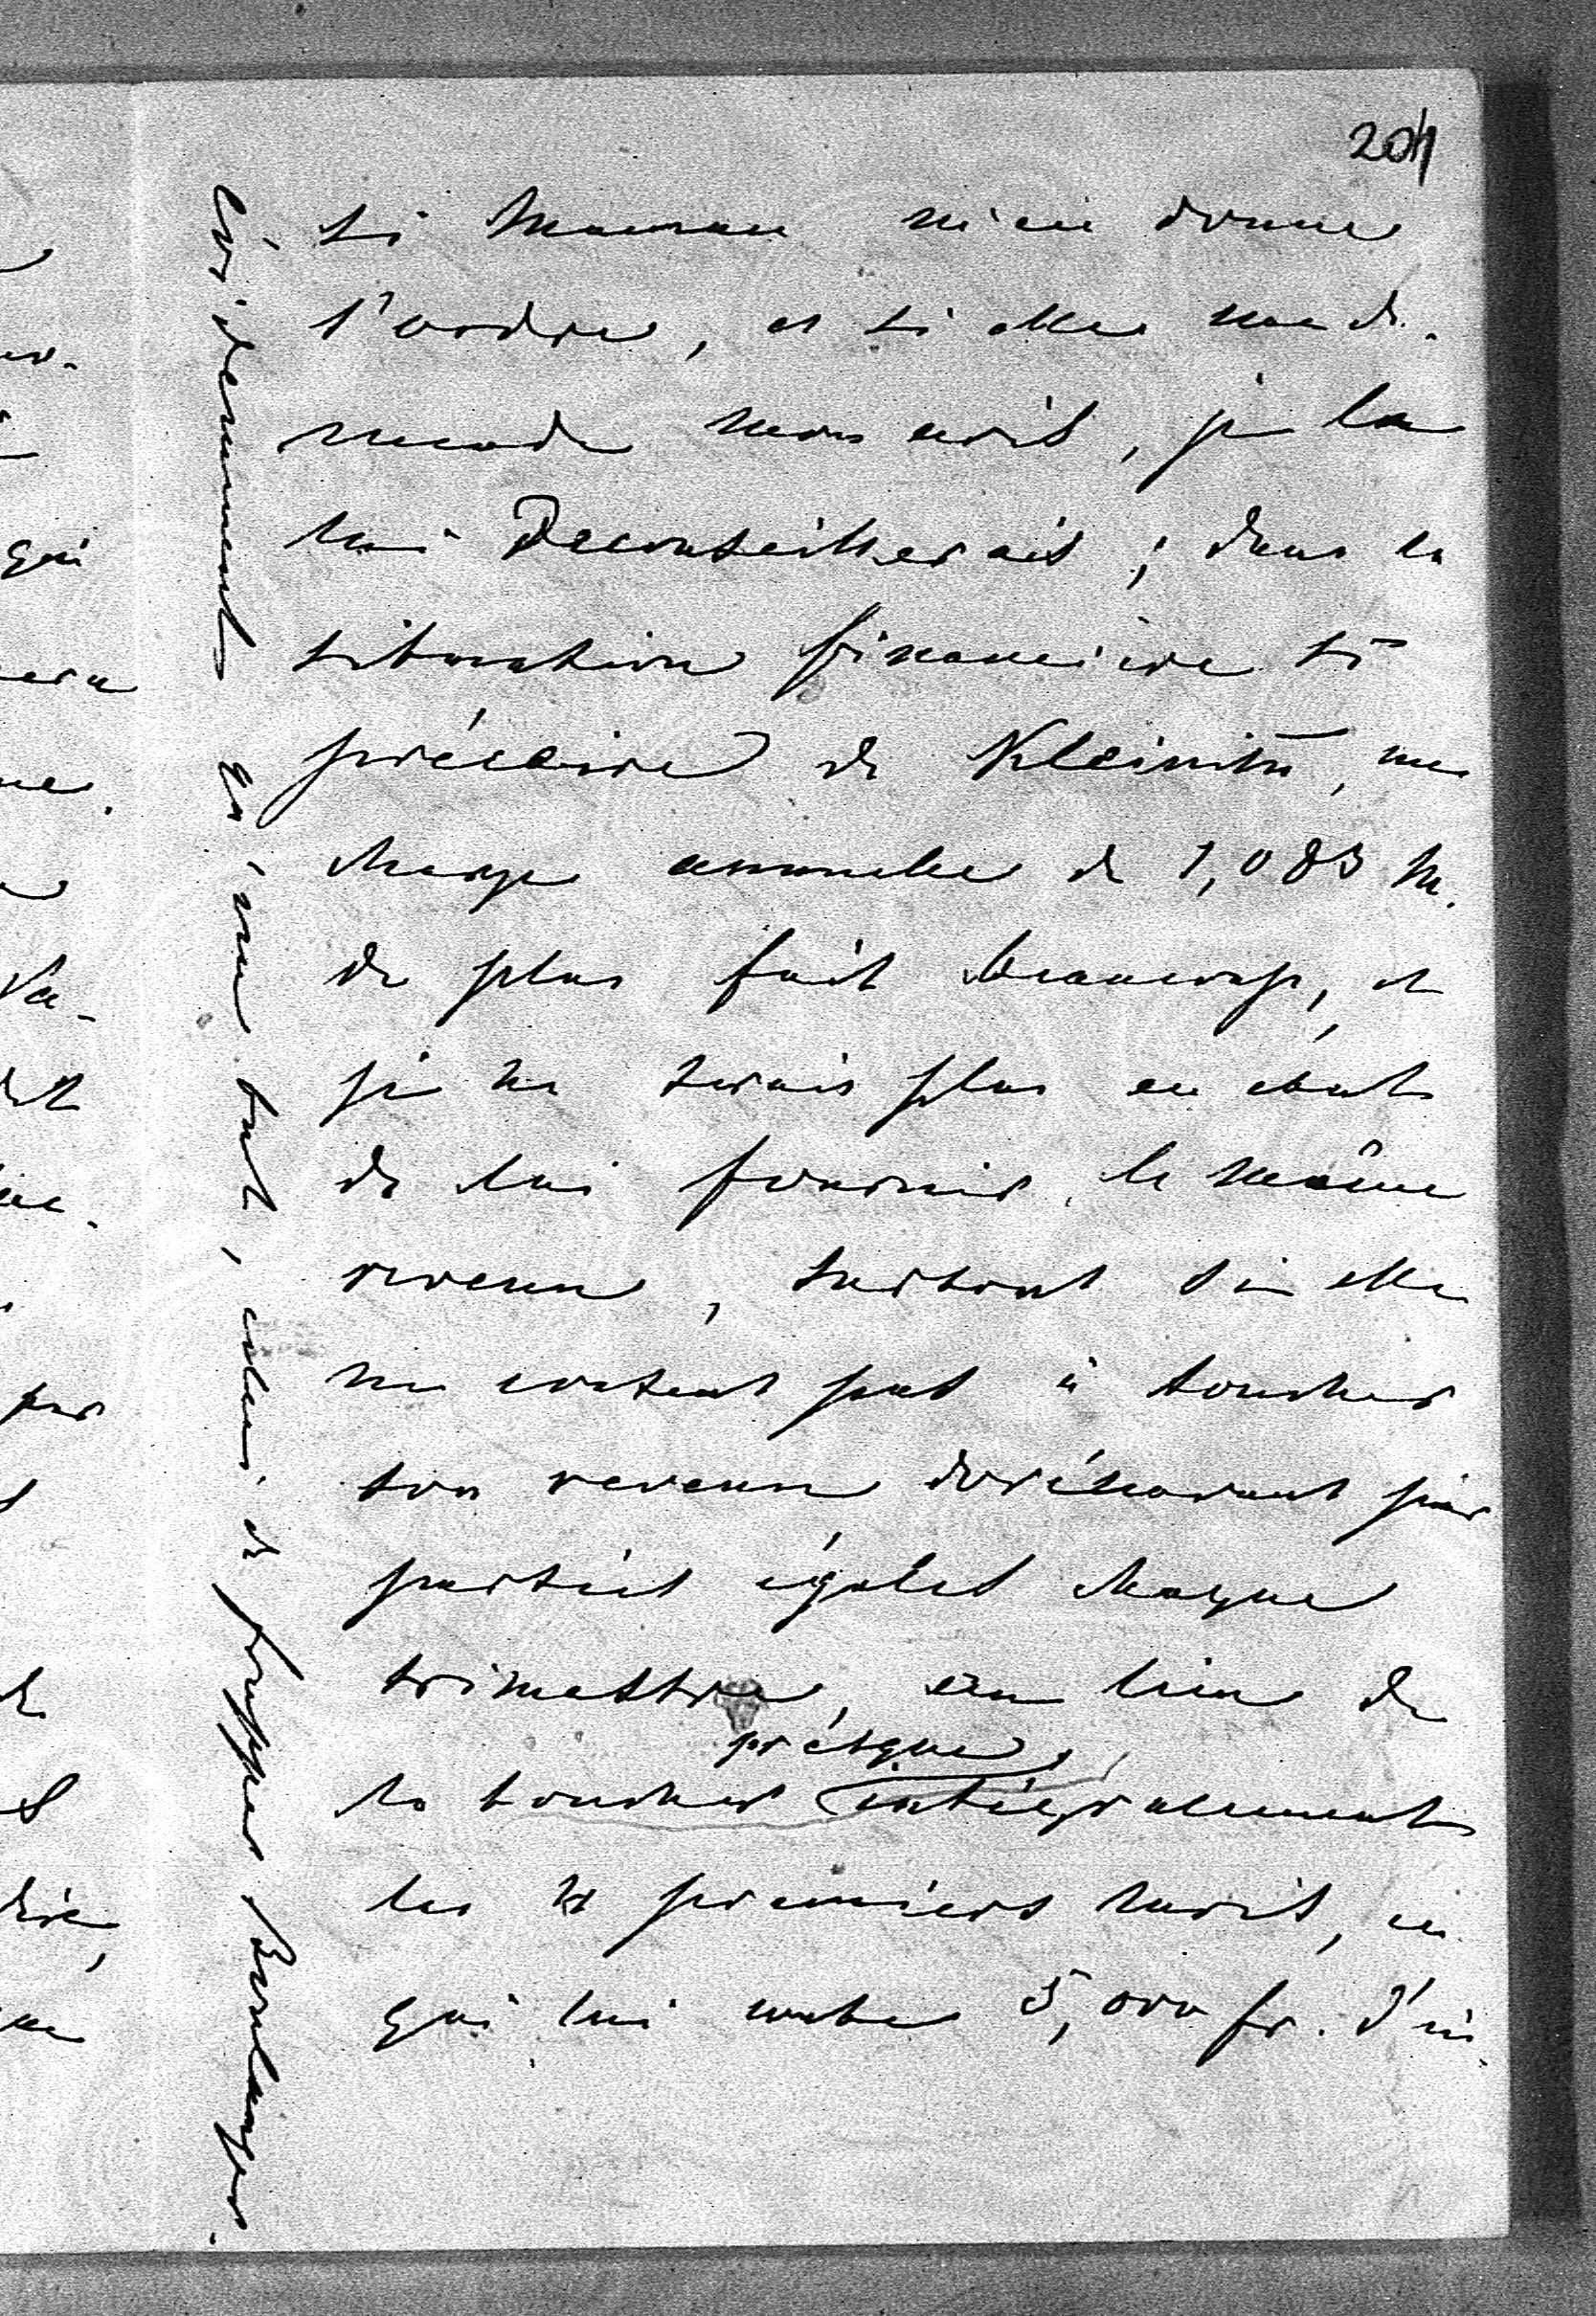 204
si Maman m'en donne
l'ordre, et si elle me de-
mande mon avis, je le
lui Deconseillerais; dans la
situation financière si
précaire de Kleinitz, une
charge annuelle de 1,083 M.
de plus fait beaucoup, et
je ne serais plus en état
de lui fournir le même
revenu, surtout si elle
ne consent pas à toucher
son revenu dorénavant par
parties égales chaque
trimestre, au lieu de
présque
le toucher intégralement
les 4 premiers mois, ce
qui lui coute 5,000 fr. d'in-
Evidemment on a un but, celui de frapper Boulanger.
qui
par